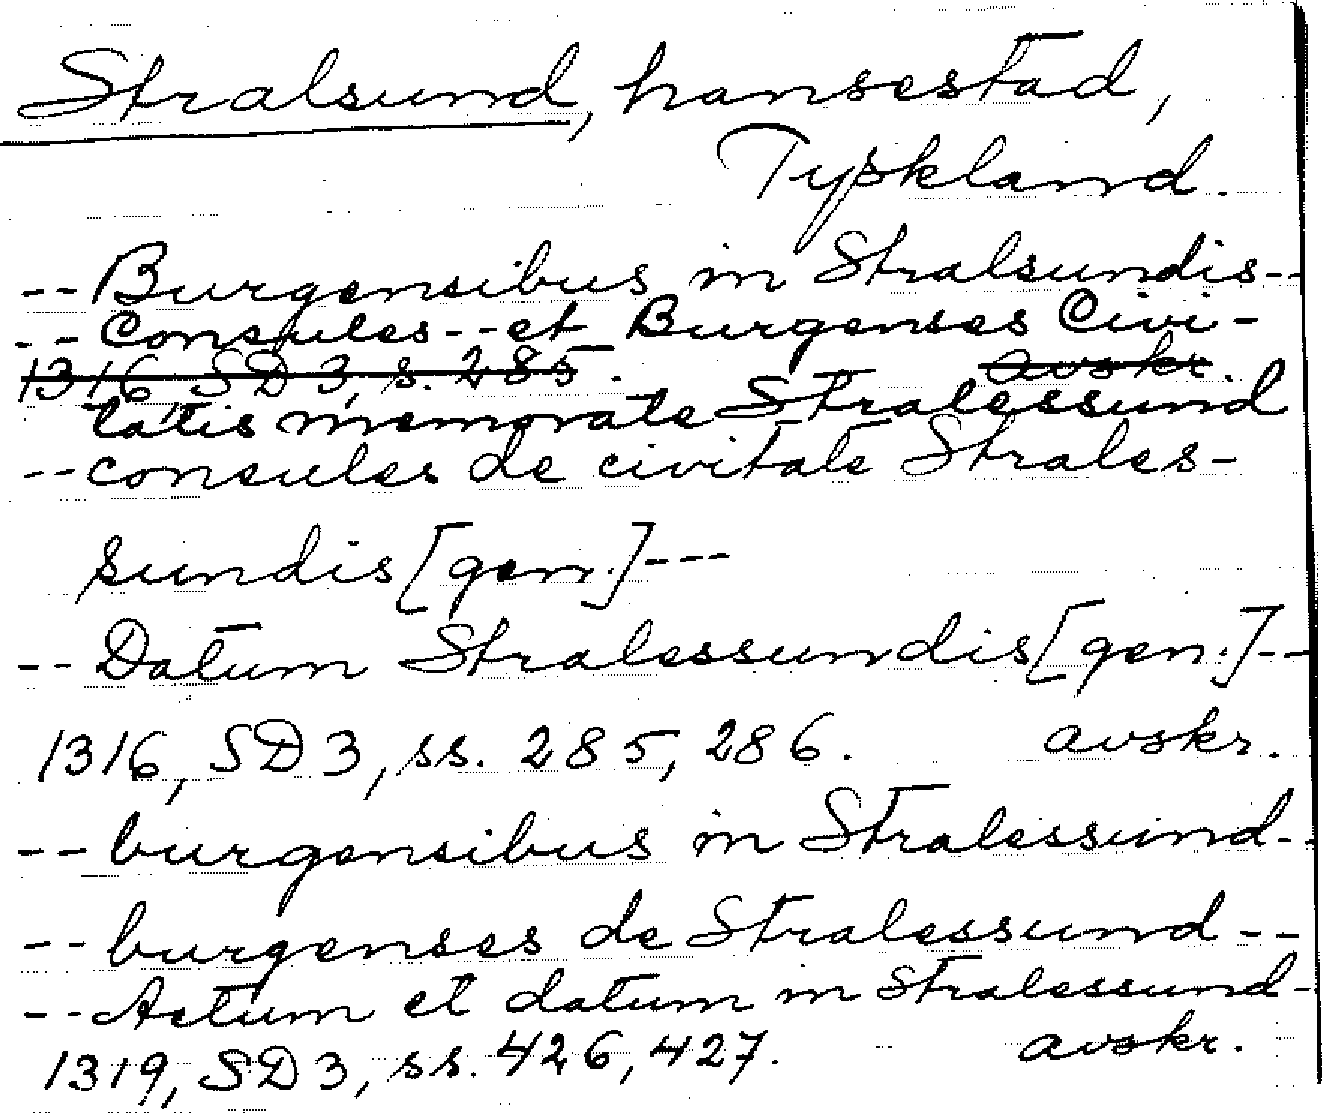 Stralsund, hansestad,
Tyskland.
-- Burgensibus in Stralsundis --
-- Consules -- et Burgenses Civi-
1316, SD 3, s. 285. avskr.
tatis memorate Stralessund
-- consules de civitate Strales-
sundis [gen.] ---
-- Datum Stralessundis [gen.] --
1316, SD 3, ss. 285, 286. avskr.
-- burgensibus in Stralessund --
-- burgenses de Stralessund --
-- Actum et datum in Stralessund -
1319, SD 3, ss. 426, 427. avskr.